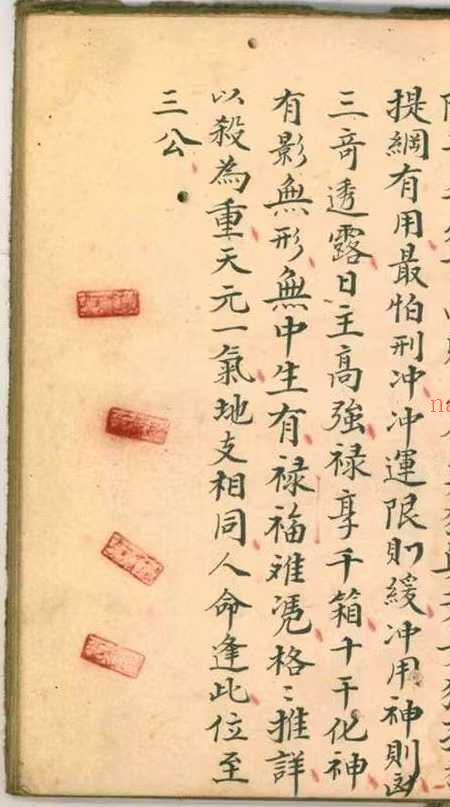 提綱有用最怕刑冲冲運限則緩冲用神則凶
三竒透露日主高強禄享千箱十干化神
有影無形無中生有禄福难凭格〻推詳
以殺為重天元一氣地支相同人命逢此位至
三公